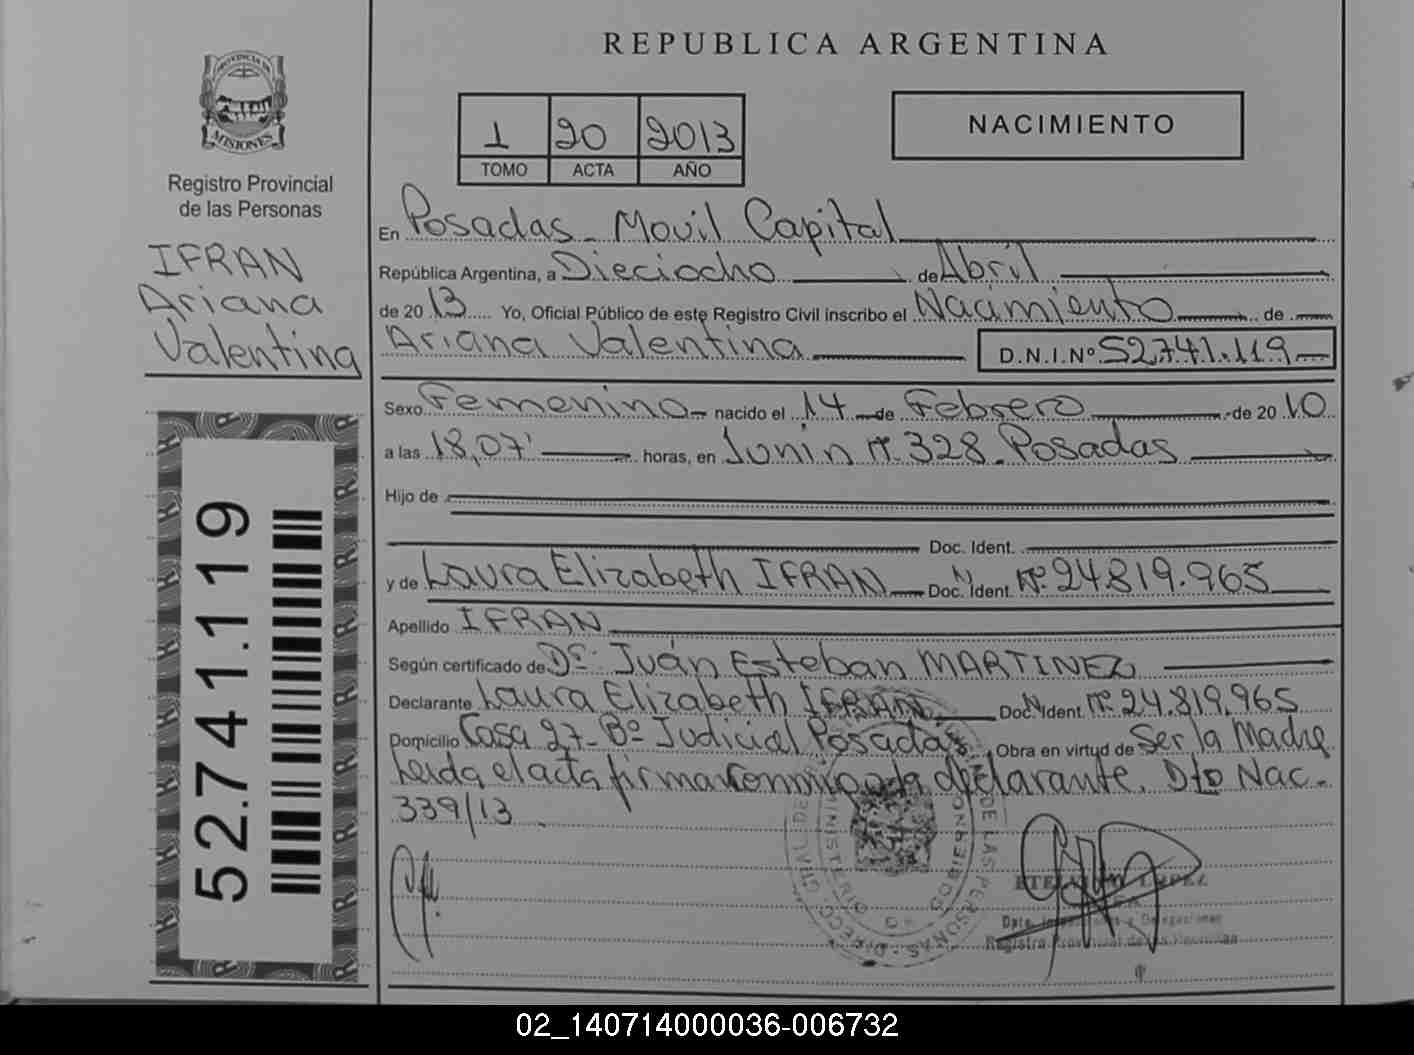 REPUBLICA ARGENTINA
PROVINCIA DE
MISIONES
Registro Provincial
de las Personas
IFRAN
Ariana
Valentina
52.741.119
1 20 2013
TOMO ACTA AÑO
NACIMIENTO
En Posadas - Movil Capital
República Argentina, a Dieciocho de Abril
de 2013 Yo, Oficial Público de este Registro Civil inscribo el Nacimiento de
Ariana Valentina D.N.I.Nº 52.741.119
Sexo Femenino nacido el 14 de Febrero de 2010
a las 18,07' horas, en Junin Nº 328 - Posadas
Hijo de
Doc. Ident.
y de Laura Elizabeth IFRAN Doc. Ident. Nº 24.819.965
Apellido IFRAN
Según certificado de Dr. Juán Esteban MARTINEZ
Declarante Laura Elizabeth IFRAN Doc. Ident. Nº 24.819.965
Domicilio Casa 27 - Bº Judicial Posadas Obra en virtud de Ser la Madre
Leida el acta firma conmigo la declarante. Dto Nac.
339/13
LOPEZ
Registro Provincial de las Personas
02_140714000036-006732